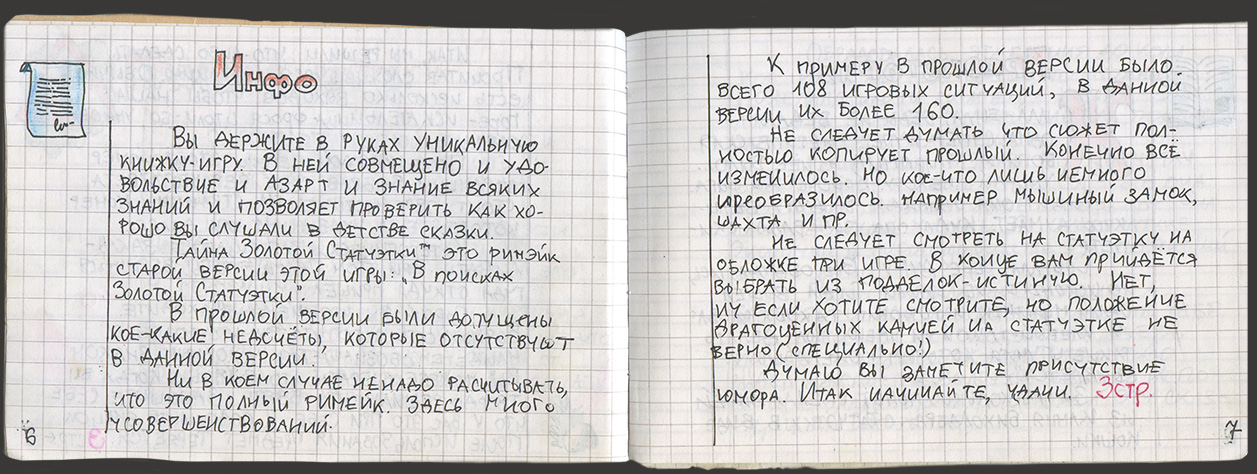 Инфо
Вы держите в руках уникальную
книжку-игру. В ней совмещено и удо-
вольствие и азарт и знание всяких
знаний и позволяет проверить как хо-
рошо вы слушали в детстве сказки.
Тайна Золотой Статуэтки™ это римэйк
старой версии этой игры: „В поисках
Золотой Статуэтки".
В прошлой версии были допущены
кое-какие недосчёты, которые отсутствуют
в данной версии.
Ни в коем случае ненадо расчитывать,
что это полный римейк. Здесь много
усовершенствований.
6
К примеру в прошлой версии было
всего 108 игровых ситуаций, в данной
версии их более 160.
Не следует думать что сюжет пол-
ностью копирует прошлый. Конечно всё
изменилось. Но кое-что лишь немного
преобразилось. Например мышиный замок,
шахта и пр.
Не следует смотреть на статуэтку на
обложке при игре. В конце вам прийдётся
выбрать из подделок-истинную. Нет,
ну если хотите смотрите, но положение
драгоценных камней на статуэтке не
верно (специально!)
Думаю вы заметите присутствие
юмора. Итак начинайте, удачи. 3стр.
7